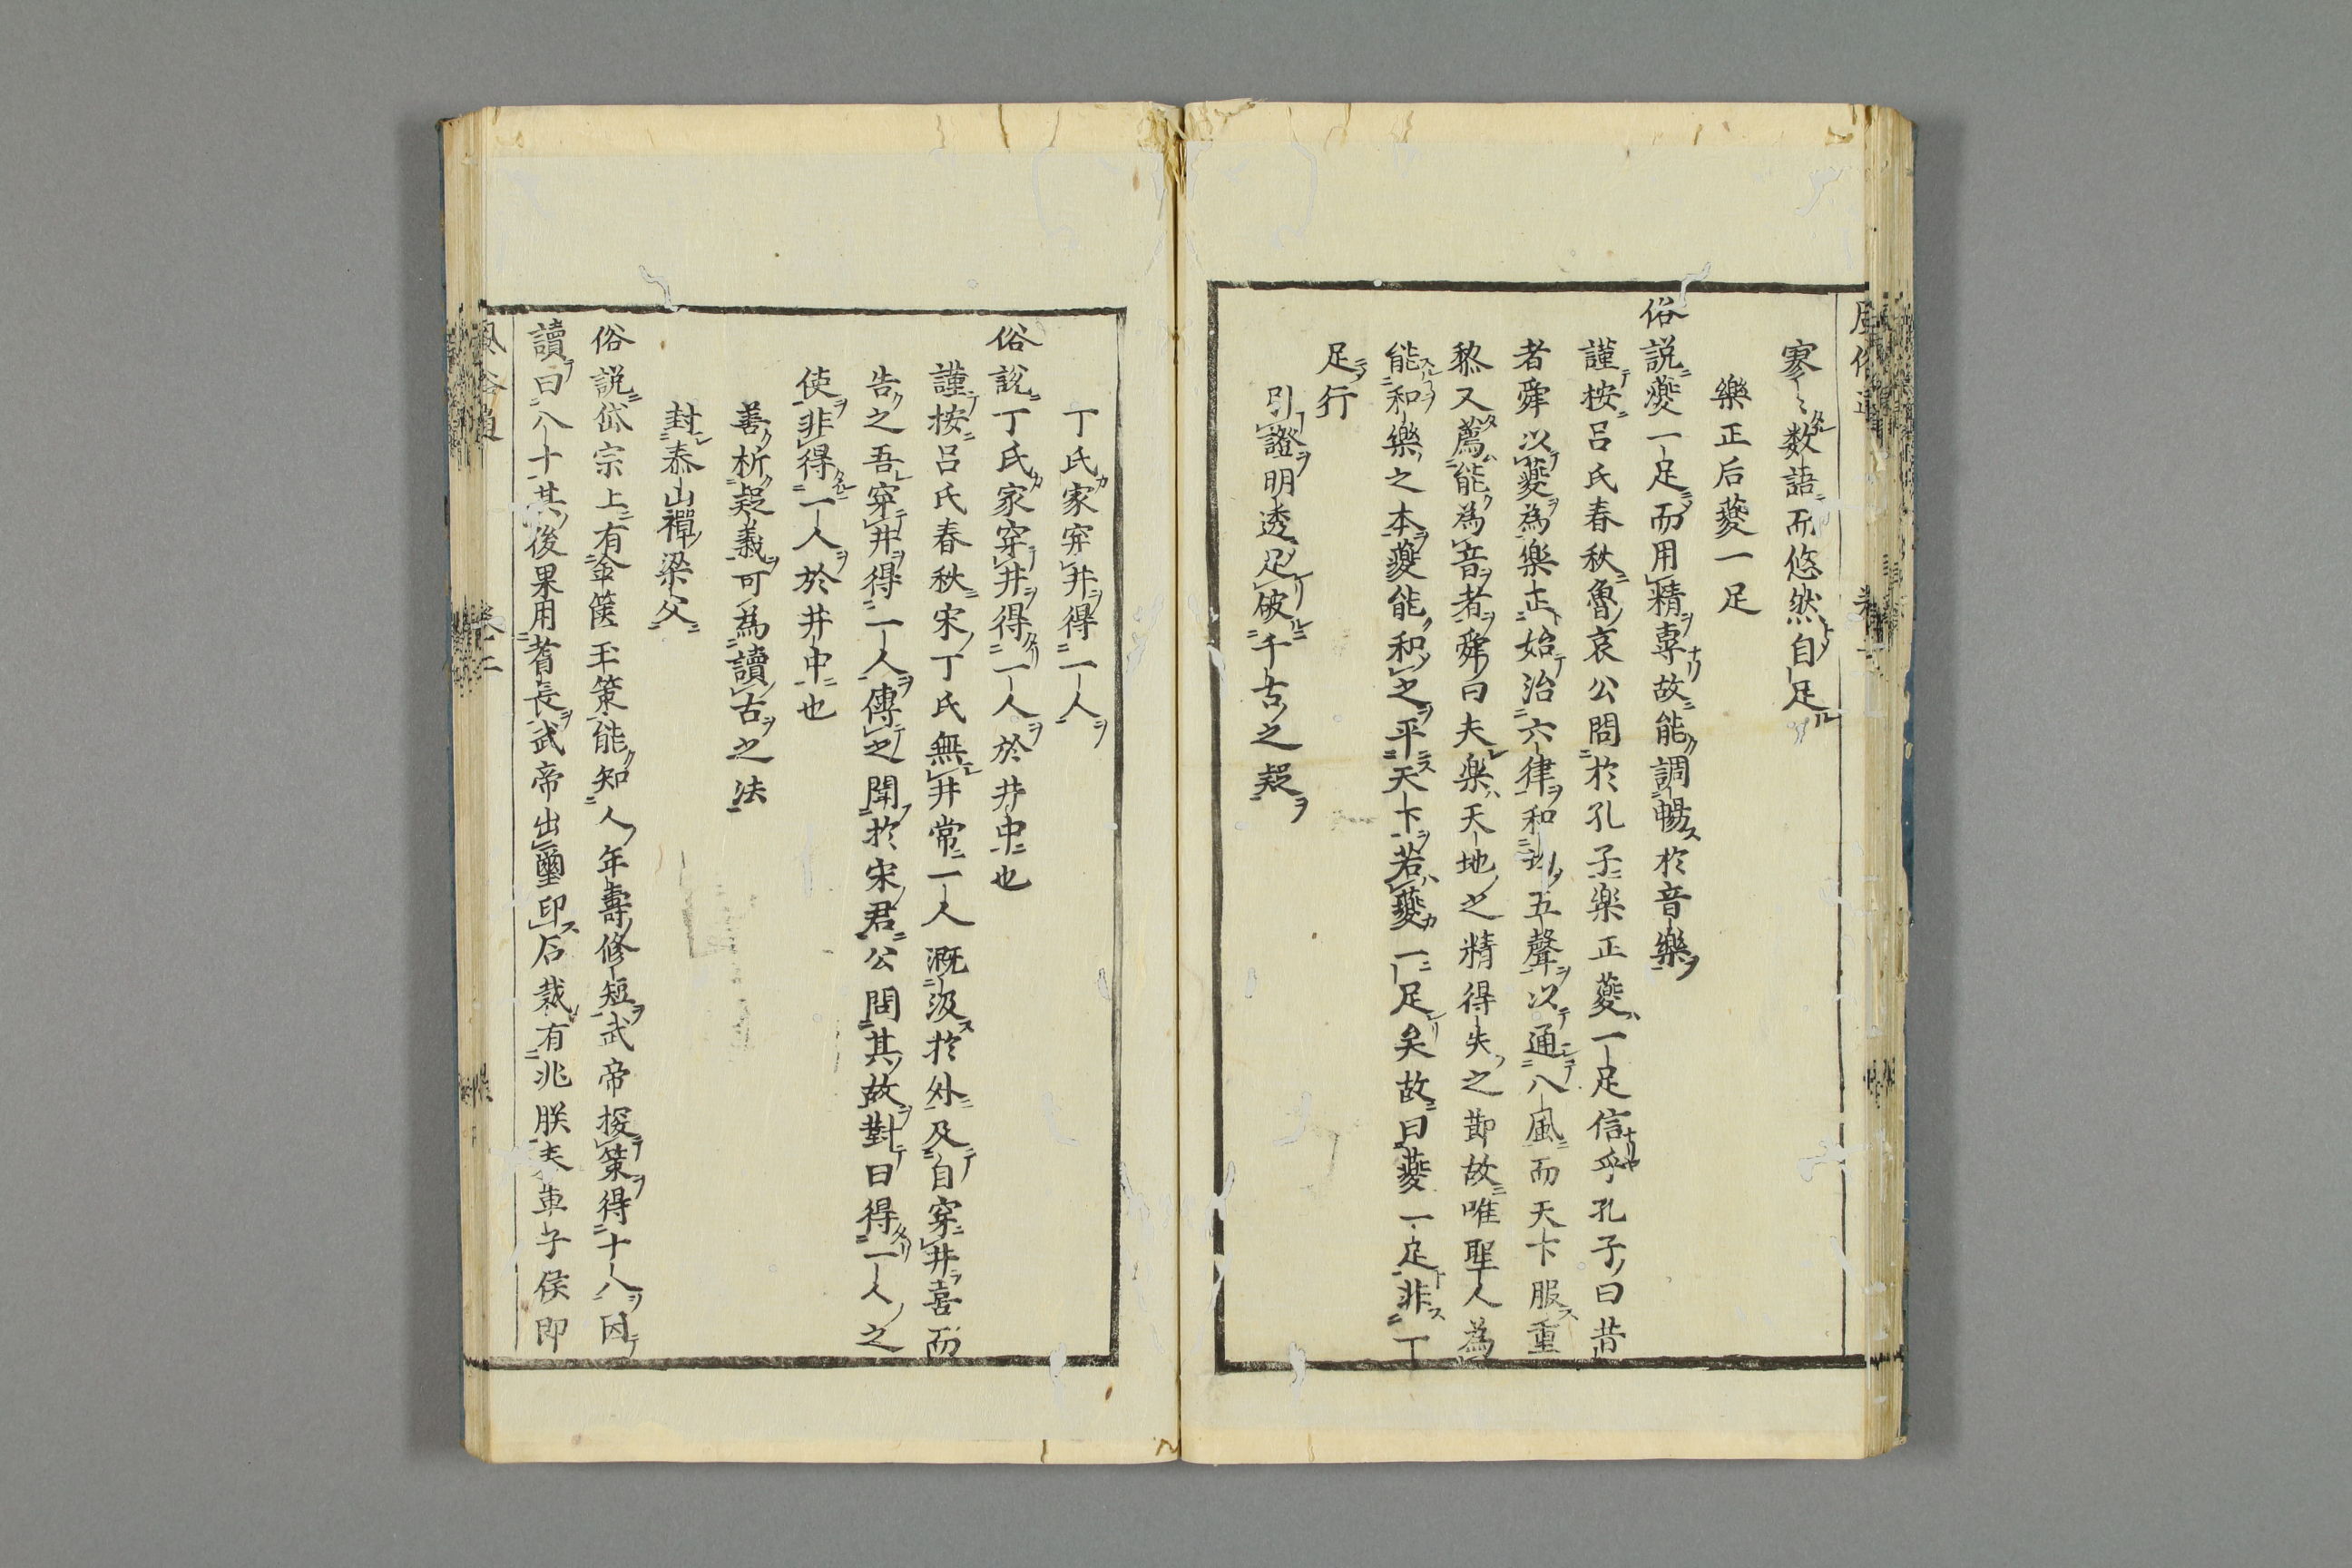 寥〻数語而悠然自足
樂正后夔一足
俗説夔一足而用精専故能調暢於音樂
謹按呂氏春秋魯哀公問於孔子楽正夔一足信乎孔子曰昔
者舜以夔為楽正始治六律和五聲以通八風而天下服重
黎又薦能為音者舜曰夫楽天地之精得失之節故唯聖人為
能和樂之本夔能和之平天下若夔一足矣故曰夔一足非一
足行
引證明透足破千古之疑
丁氏家穿井得一人
俗説丁氏家穿井得一人於井中也
謹按呂氏春秋宋丁氏無井常一人溉汲於外及自穿井喜而
告之吾穿井得一人傳之聞於宋君公問其故對曰得一人之
使非得一人於井中也
善析疑義可為讀古之法
封泰山禪梁父
俗説岱宗上有金篋玉策能知人年壽修短武帝探策得十八因
讀曰八十其後果用耆長武帝出璽印石裁有兆朕奉車子侯即